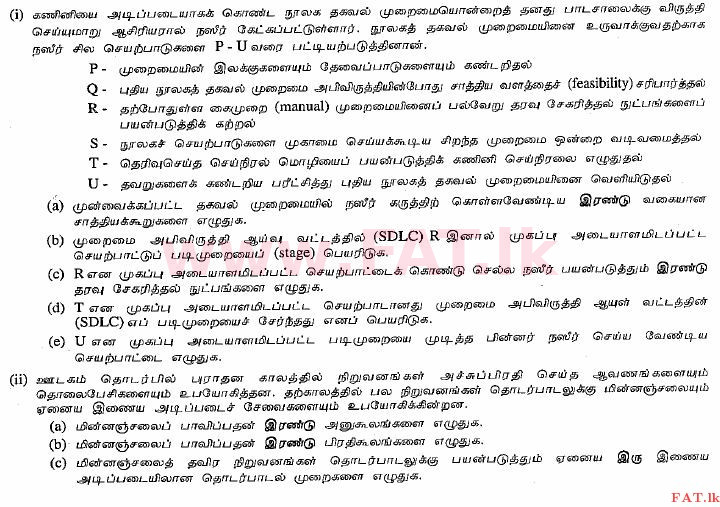 (i) கணினியை அடிப்படையாகக் கொண்ட நூலக தகவல் முறைமையொன்றைத் தனது பாடசாலைக்கு விருத்தி
செய்யுமாறு ஆசிரியரால் நஸீர் கேட்கப்பட்டுள்ளார். நூலகத் தகவல் முறைமையினை உருவாக்குவதற்காக
நஸீர் சில செயற்பாடுகளை P - U வரை பட்டியற்படுத்தினான்.
P - முறைமையின் இலக்குகளையும் தேவைப்பாடுகளையும் கண்டறிதல்
Q - புதிய நூலகத் தகவல் முறைமை அபிவிருத்தியின்போது சாத்திய வளத்தைச் (feasibility) சரிபார்த்தல்
R - தற்போதுள்ள கைமுறை (manual) முறைமையினைப் பல்வேறு தரவு சேகரித்தல் நுட்பங்களைப்
பயன்படுத்திக் கற்றல்
S - நூலகச் செயற்பாடுகளை முகாமை செய்யக்கூடிய சிறந்த முறைமை ஒன்றை வடிவமைத்தல்
T - தெரிவுசெய்த செய்நிரல் மொழியைப் பயன்படுத்திக் கணினி செய்நிரலை எழுதுதல்
U - தவறுகளைக் கண்டறிய பரீட்சித்து புதிய நூலகத் தகவல் முறைமையினை வெளியிடுதல்
(a) முன்வைக்கப்பட்ட தகவல் முறைமையில் நஸீர் கருத்திற் கொள்ளவேண்டிய இரண்டு வகையான
சாத்தியக்கூறுகளை எழுதுக.
(b) முறைமை அபிவிருத்தி ஆய்வு வட்டத்தில் (SDLC) R இனால் முகப்பு அடையாளமிடப்பட்ட
செயற்பாட்டுப் படிமுறையைப் (stage) பெயரிடுக.
(c) R என முகப்பு அடையாளமிடப்பட்ட செயற்பாட்டைக் கொண்டு செல்ல நஸீர் பயன்படுத்தும் இரண்டு
தரவு சேகரித்தல் நுட்பங்களை எழுதுக.
(d) T என முகப்பு அடையாளமிடப்பட்ட செயற்பாடானது முறைமை அபிவிருத்தி ஆயுள் வட்டத்தின்
(SDLC) எப் படிமுறையைச் சேர்ந்தது எனப் பெயரிடுக.
(e) U என முகப்பு அடையாளமிடப்பட்ட படிமுறையை முடித்த பின்னர் நஸீர் செய்ய வேண்டிய
செயற்பாட்டை எழுதுக.
(ii) ஊடகம் தொடர்பில் புராதன காலத்தில் நிறுவனங்கள் அச்சுப்பிரதி செய்த ஆவணங்களையும்
தொலைபேசிகளையும் உபயோகித்தன. தற்காலத்தில் பல நிறுவனங்கள் தொடர்பாடலுக்கு மின்னஞ்சலையும்
ஏனைய இணைய அடிப்படைச் சேவைகளையும் உபயோகிக்கின்றன.
(a) மின்னஞ்சலைப் பாவிப்பதன் இரண்டு அனுகூலங்களை எழுதுக.
(b) மின்னஞ்சலைப் பாவிப்பதன் இரண்டு பிரதிகூலங்களை எழுதுக.
(c) மின்னஞ்சலைத் தவிர நிறுவனங்கள் தொடர்பாடலுக்கு பயன்படுத்தும் ஏனைய இரு இணைய
அடிப்படையிலான தொடர்பாடல் முறைகளை எழுதுக.
www.FAT.lk
FAT.lk